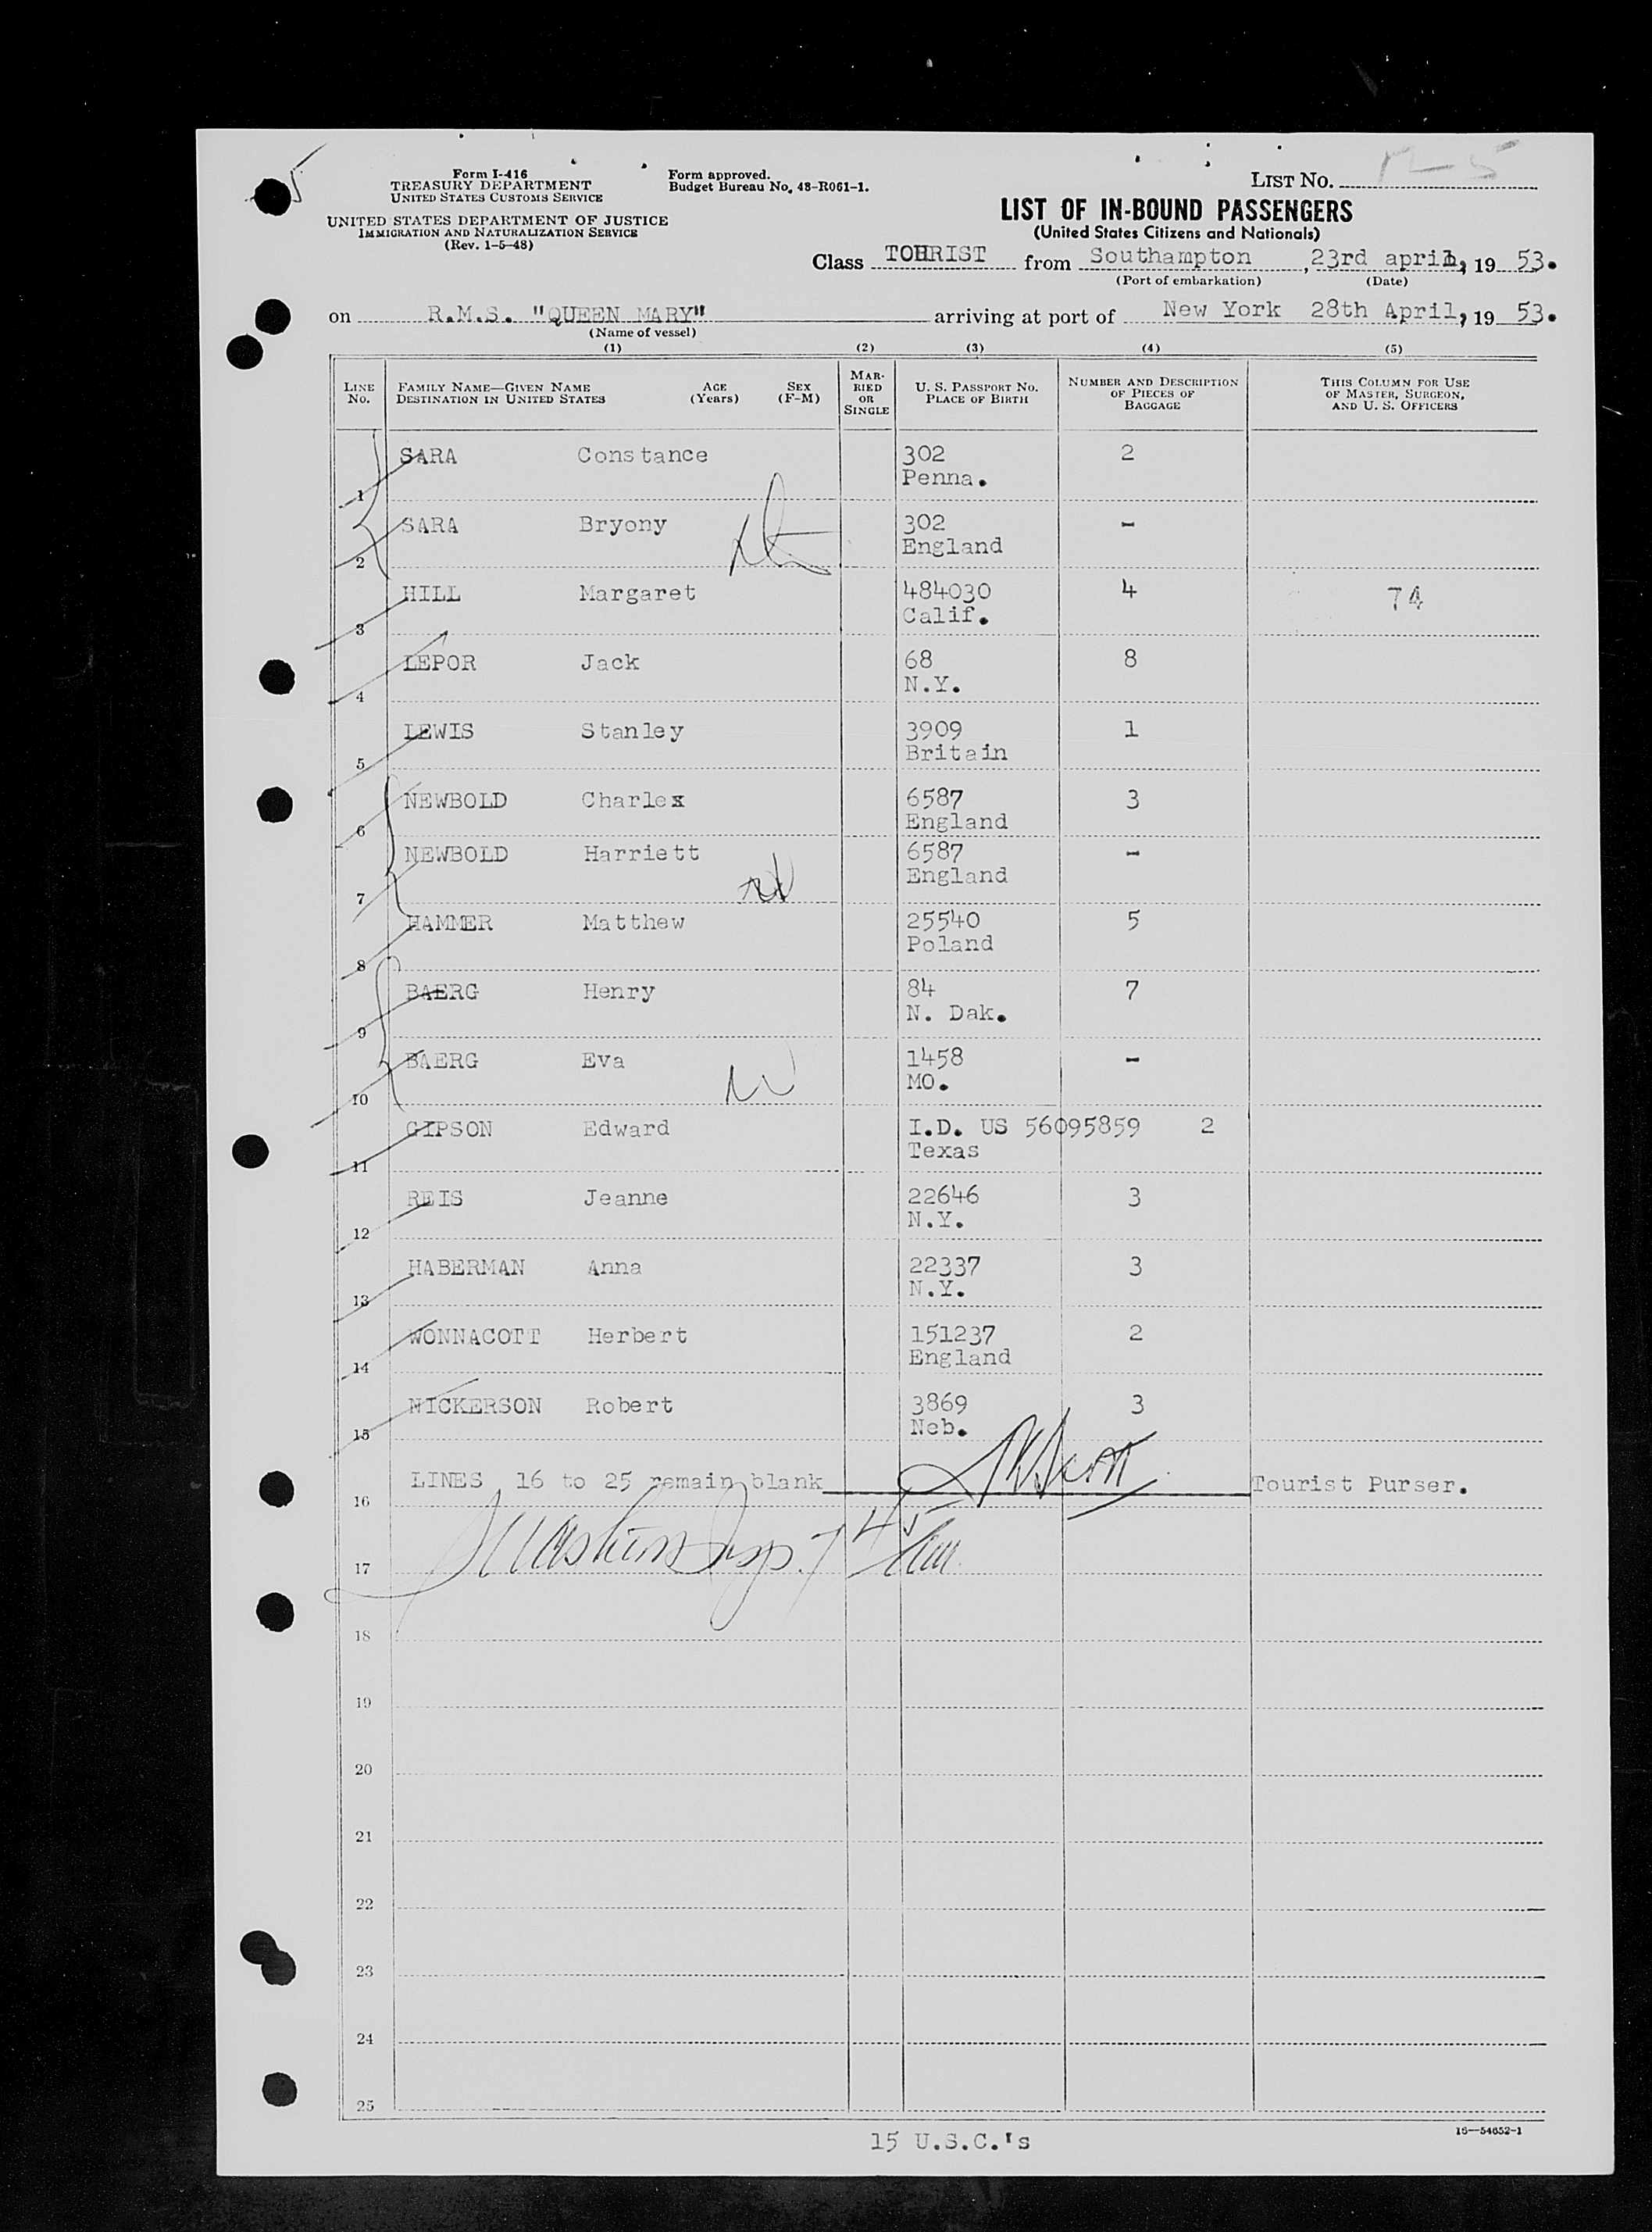 Form I-416
TREASURY DEPARTMENT
UNITED STATES CUSTOMS SERVICE
UNITED STATES DEPARTMENT OF JUSTICE
IMMIGRATION AND NATURALIZATION SERVICE
(Rev. 1-5-48)
Form approved.
Budget Bureau No. 48-R061-1.
LIST No.
LIST OF IN-BOUND PASSENGERS
(United States Citizens and Nationals)
Class TOURIST from Southampton, 23rd april, 19 53.
(Port of embarkation) (Date)
on R.M.S. "QUEEN MARY" arriving at port of New York 28th April, 19 53.
(Name of vessel)
(1) (2) (3) (4) (5)
LINE No. FAMILY NAME—GIVEN NAME DESTINATION IN UNITED STATES AGE (Years) SEX (F-M) MARRIED OR SINGLE U. S. PASSPORT NO. PLACE OF BIRTH NUMBER AND DESCRIPTION OF PIECES OF BAGGAGE THIS COLUMN FOR USE OF MASTER, SURGEON, AND U. S. OFFICERS
SARA Constance 302 2
1 Penna.
SARA Bryony 302 -
2 England
HILL Margaret 484030 4 74
3 Calif.
LEPOR Jack 68 8
4 N.Y.
LEWIS Stanley 3909 1
5 Britain
NEWBOLD Charlex 6587 3
6 England
NEWBOLD Harriett 6587 -
7 England
HAMMER Matthew 25540 5
8 Poland
BAERG Henry 84 7
9 N. Dak.
BAERG Eva 1458 -
10 MO.
GIPSON Edward I.D. US 56095859 2
11 Texas
REIS Jeanne 22646 3
12 N.Y.
HABERMAN Anna 22337 3
13 N.Y.
WONNACOTT Herbert 151237 2
14 England
NICKERSON Robert 3869 3
15 Neb.
LINES 16 to 25 remain blank Tourist Purser.
16
17
18
19
20
21
22
23
24
25
15 U.S.C.'s
16—54652-1